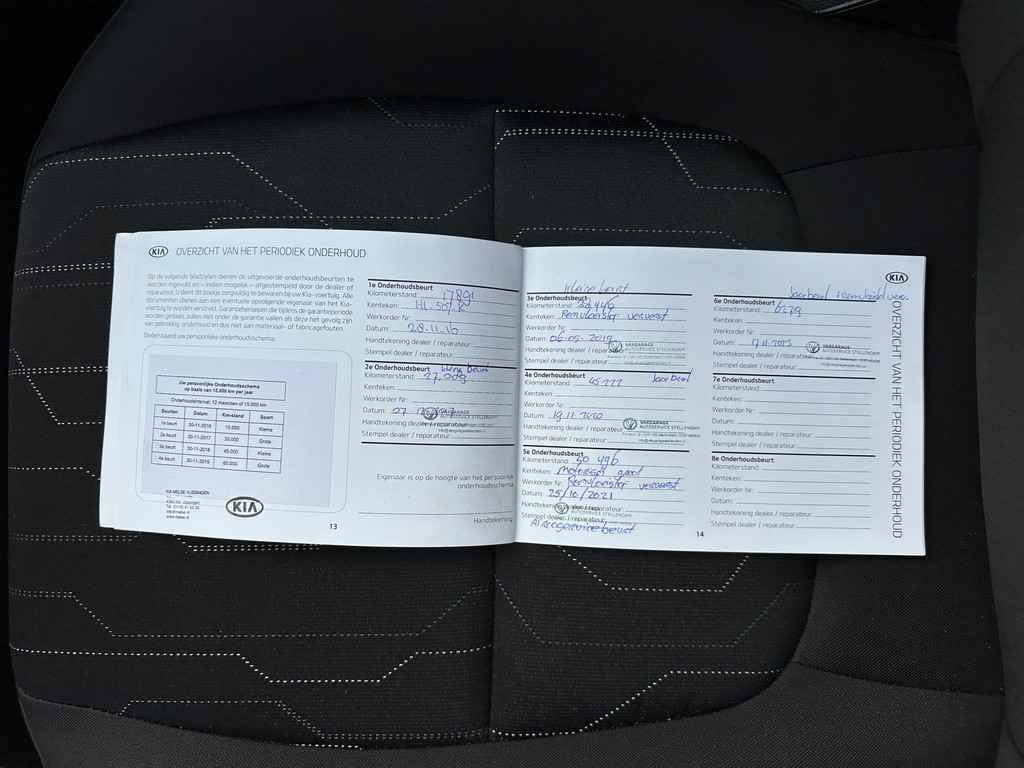 KIA OVERZICHT VAN HET PERIODIEK ONDERHOUD
Op de volgende bladzijden dienen de uitgevoerde onderhoudsbeurten te
worden ingevuld en – indien mogelijk – afgestempeld door de dealer of
reparateur. U dient dit boekje zorgvuldig te bewaren bij uw Kia-voertuig. Alle
documenten dienen aan een eventuele opvolgende eigenaar van het Kia-
voertuig te worden verstrekt. Garantieclaims die tijdens de garantieperiode
worden gedaan, zullen niet onder de garantie vallen als deze het gevolg zijn
van gebrekkig onderhoud dus niet aan materiaal- of fabricagefouten.
Onderstaand uw persoonlijke onderhoudsschema:
Uw persoonlijke Onderhoudsschema
op basis van 15.000 km per jaar
Onderhoudsinterval: 12 maanden of 15.000 km
Beurten Datum Km-stand Soort
1e beurt 30-11-2016 15.000 Kleine
2e beurt 30-11-2017 30.000 Grote
3e beurt 30-11-2018 45.000 Kleine
4e beurt 30-11-2019 60.000 Grote
KIA
13
1e Onderhoudsbeurt
Kilometerstand: 17891
Kenteken:
Werkorder Nr:
Datum: 28.11.16
Handtekening dealer / reparateur:
Stempel dealer / reparateur:
2e Onderhoudsbeurt
Kilometerstand:
Kenteken:
Werkorder Nr:
Datum:
Handtekening dealer / reparateur:
Stempel dealer / reparateur:
Eigenaar is op de hoogte van het persoonlijk
onderhoudsschema:
Handtekening:
Kleine beurt
3e Onderhoudsbeurt
Kilometerstand:
Kenteken: Remvloeistof ververst
Werkorder Nr:
Datum: 06-05-2019
Handtekening dealer / reparateur:
VAKGARAGE
AUTOSERVICE STELLENDAM
Stempel dealer / reparateur:
4e Onderhoudsbeurt
Kilometerstand: 45777 Jaarbeurt
Kenteken:
Werkorder Nr:
Datum: 19.11.2020
Handtekening dealer / reparateur:
VAKGARAGE
AUTOSERVICE STELLENDAM
Stempel dealer / reparateur:
5e Onderhoudsbeurt
Kilometerstand: 50 496
Kenteken:
Werkorder Nr: Remvloeistof ververst
Datum: 25/10/2021
Handtekening dealer / reparateur:
AUTOSERVICE STELLENDAM
Stempel dealer / reparateur:
14
KIA
Jaarbeurt
6e Onderhoudsbeurt
Kilometerstand:
Kenteken:
Werkorder Nr:
Datum:
Handtekening dealer / reparateur:
VAKGARAGE
AUTOSERVICE STELLENDAM
Stempel dealer / reparateur:
7e Onderhoudsbeurt
Kilometerstand:
Kenteken:
Werkorder Nr:
Datum:
Handtekening dealer / reparateur:
Stempel dealer / reparateur:
8e Onderhoudsbeurt
Kilometerstand:
Kenteken:
Werkorder Nr:
Datum:
Handtekening dealer / reparateur:
Stempel dealer / reparateur:
OVERZICHT VAN HET PERIODIEK ONDERHOUD